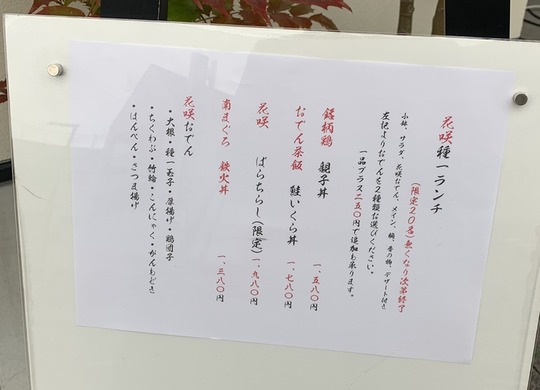 花咲種一ランチ
(限定20名)無くなり次第終了
小鉢、サラダ、花咲おでん、メイン、椀、香の物、デザート付き
左記よりおでんを2種類お選びください。
一品プラス二五〇円で追加も承ります。
銘柄鶏 親子丼 一、五八〇円
おでん茶飯 鮭いくら丼 一、七八〇円
花咲 ばらちらし(限定) 一、九八〇円
南まぐろ 鉄火丼 一、三八〇円
花咲おでん
・大根・種一玉子・厚揚げ・鶏団子
・ちくわぶ・竹輪・こんにゃく・がんもどき
・はんぺん・さつま揚げ